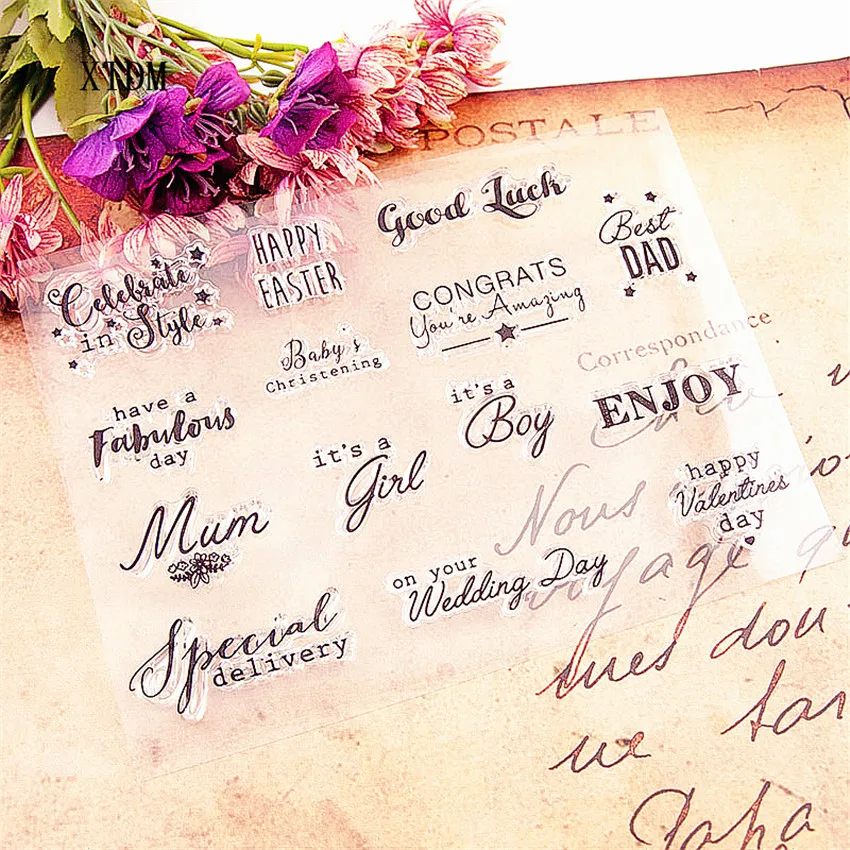 XTDM
POSTALE
Good Luck
HAPPY
EASTER
Best
DAD
Celebrate
in Style
CONGRATS
You're Amazing
Baby's
Christening
Correspondance
have a
Fabulous
day
it's a
Boy
ENJOY
it's a
Girl
happy
Valentines
day
Mum
Nous
on your
Wedding Day
voyage
Special
delivery
mes dou
ue